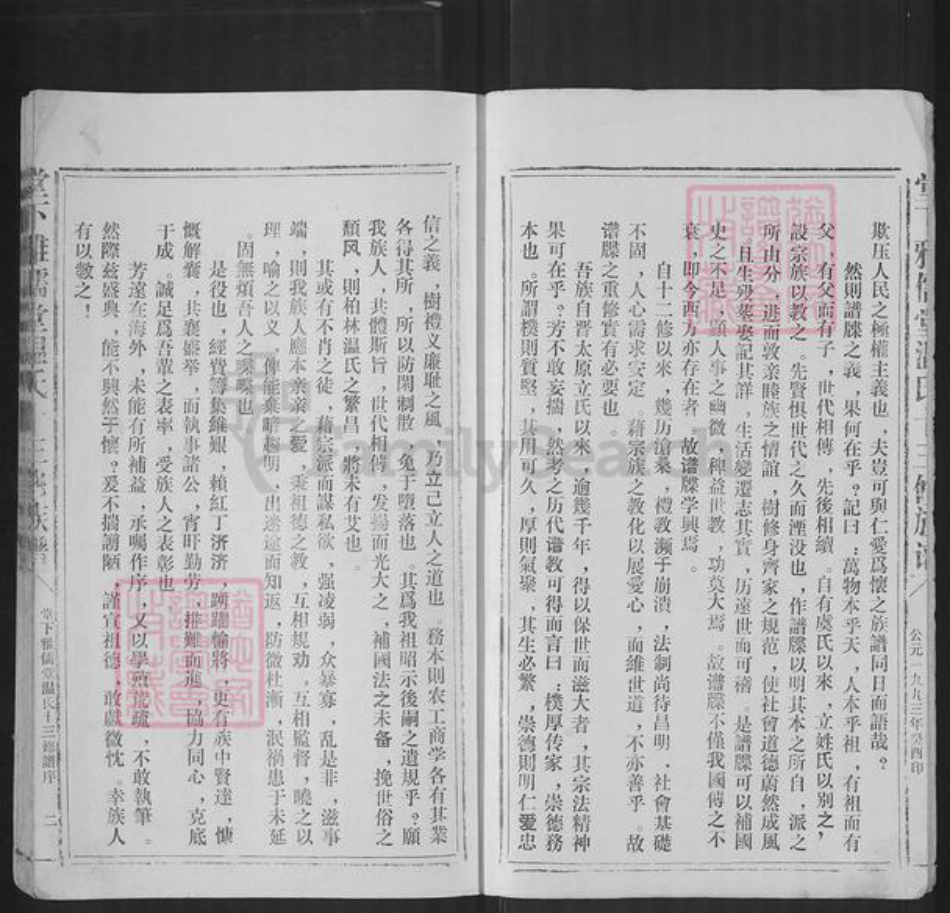 欺压人民之極權主義也，夫豈可與仁愛爲懷之族譜同日而語哉？
然則譜牒之義，果何在乎？記曰：萬物本乎天，人本乎祖，有祖而有
父，有父而有子，世代相傳，先後相續。自有虞氏以來，立姓氏以別之，
設宗族以教之。先賢惧世代之久而湮没也，作譜牒以明其本之所自，派之
所由分，進而敦亲睦族之情誼，樹修身齊家之规范，使社會道德蔚然成風
。且生殁葬娶記其詳，生活變遷志其實，历遠世而可稽。是譜牒可以補國
史之不足，顯人事之幽微，稗益世教，功莫大焉。故谱牒不僅我國傳之不
衰，即今西方亦存在者，故谱牒学興焉。
自十二修以来，幾历滄桑，禮教濒于崩溃，法制尚待昌明，社會基礎
不固，人心需求安定。藉宗族之教化以展愛心，而維世道，不亦善乎。故
谱牒之重修實有必要也。
吾族自晋太原立氏以來，逾幾千年，得以保世而滋大者，其宗法精神
果可在乎？芳不敢妄揣，然考之历代谱教可得而言曰：樸厚传家，崇德務
本也。所謂樸則質堅，其用可久，厚則氣聚，其生必繁，崇德則明仁爱忠
信之義，樹禮义廉耻之風，乃立己立人之道也。務本則农工商学各有其業
各得其所，所以防閑制散，免于墮落也。其爲我祖昭示後嗣之遺规乎？願
我族人，共體斯旨，世代相傳，发揚而光大之，補國法之未备，挽世俗之
颓风，則柏林温氏之繁昌，將未有艾也。
其或有不肖之徒，藉宗派而謀私欲，强凌弱，众暴寡，乱是非，滋事
端，則我族人應本亲亲之爱，秉祖德之教，互相规劝，互相監督，曉之以
理，喻之以义，俾能棄暗趨明，出迷途而知返，防微杜漸，泯禍患于未延
。固無煩吾人之喋喋也。
是役也，經費籌集維艱，賴红丁济济，踴躍輸將，更有族中賢達，慷
慨解囊，共襄盛举，而執事諸公，宵旰勤劳，排難而進，協力同心，克底
于成。誠足爲吾輩之表率，受族人之表彰也。
芳遠在海外，未能有所補益，承囑作序，又以學殖荒疏，不敢執筆。
然際兹盛典，能不興然于懷？爰不揣謭陋，謹宣祖德，敢獻微忱。幸族人
有以教之！
堂下雅儒堂温氏十三修族谱
公元一九九三年癸酉印
堂下雅儒堂温氏十三修譜序
二
FamilySearch